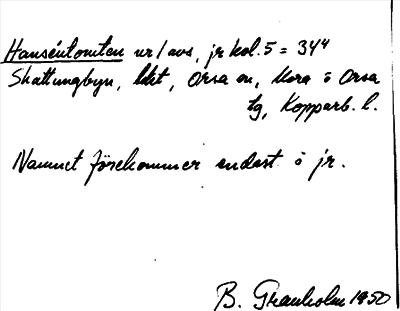 Hansétomten ur/avs, jr kol. 5 = 34⁴
Skattungbyn, lkt, Orsa sn, Mora o Orsa
tg, Kopparb. l.
Namnet förekommer endast i jr.
B. Granholm 1950